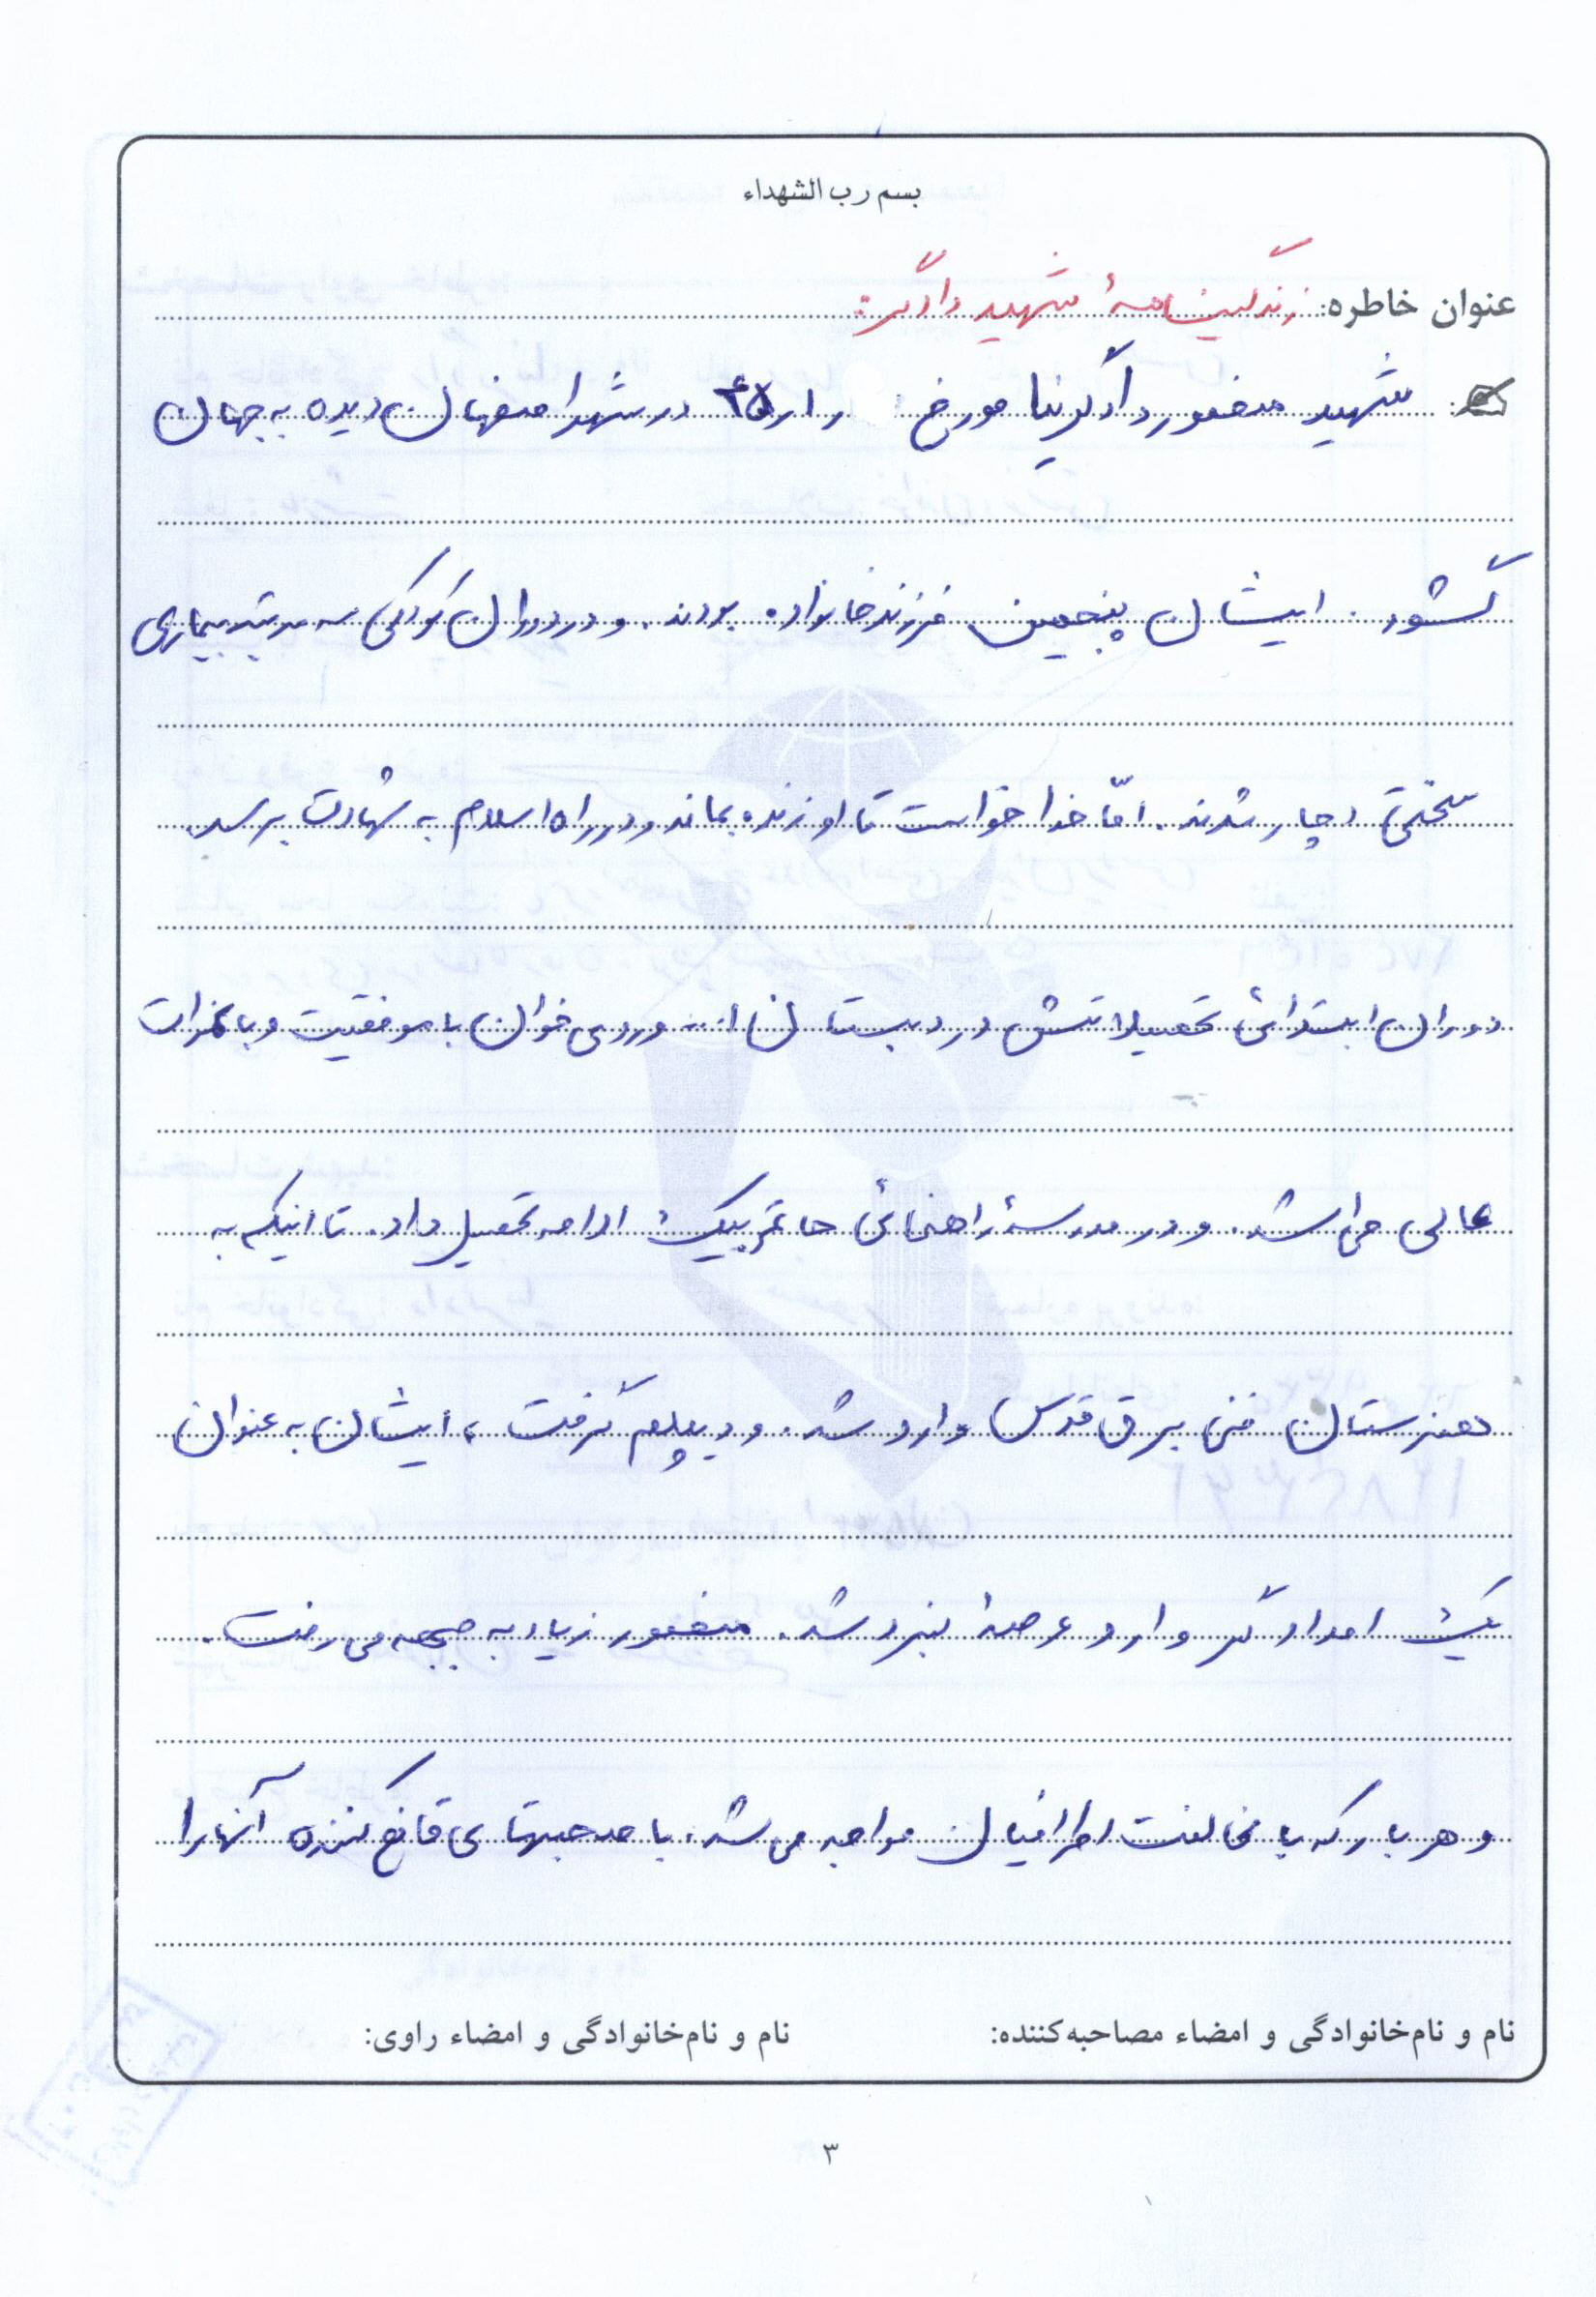 بسم رب الشهداء
عنوان خاطره: زندگینامهٔ شهید دادگر:
شهید منصور دادگرنیا مورخ ۴۵/۱/۱ در شهر اصفهان دیده به جهان
گشود. ایشان پنجمین فرزند خانواده بودند. و در دوران کودکی سه مرتبه بیماری
سختی دچار شدند. امّا خدا خواست تا او زنده بماند و در راه اسلام به شهادت برسد.
دوران ابتدائی تحصیلاتش در دبستان وردی خوان با موفقیت و با نمرات
عالی طی شد. و در مدرسهٔ راهنمائی حاتم بیک ادامه تحصیل داد. تا اینکه به
هنرستان فنی برق قدس وارد شد. و دیپلم گرفت، ایشان به عنوان
یک امدادگر وارد عرصهٔ نبرد شد. منصور زیاد به جبهه می رفت.
و هر بار که با مخالفت اطرافیان مواجه می شد. با صحبتهای قانع کننده آنها را
نام و نام‌خانوادگی و امضاء مصاحبه‌کننده: نام و نام‌خانوادگی و امضاء راوی:
۳